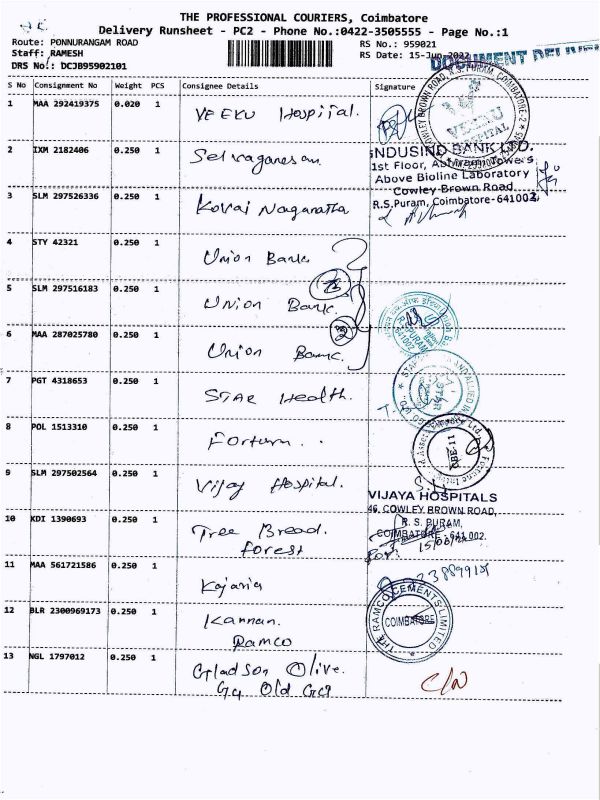 THE PROFESSIONAL COURIERS, Coimbatore
Delivery Runsheet - PC2 - Phone No.:0422-3505555 - Page No.:1
Route: PONNURANGAM ROAD
RS No.: 959021
Staff: RAMESH
RS Date: 15-Jun-2022
DRS No.: DCJB95902101
DOCUMENT
S No Consignment No Weight PCS Consignee Details Signature
1 MAA 292419375 0.020 1 VEEKU Hospital.
2 IXM 2182406 0.250 1 Selvaganesan
INDUSIND BANK LTD.
1st Floor, Towers
Above Bioline Laboratory
Cowley Brown Road
R.S.Puram, Coimbatore-641002
3 SLM 297526336 0.250 1 Kovai Naganatha
4 STY 42321 0.250 1 Union Bank
5 SLM 297516183 0.250 1 Union Bank.
6 MAA 287025780 0.250 1 Union Bank.
7 PGT 4318653 0.250 1 STAR Health.
8 POL 1513310 0.250 1 Forturn..
9 SLM 297502564 0.250 1 Vijay Hospital.
VIJAYA HOSPITALS
46, COWLEY BROWN ROAD,
R. S. PURAM,
COIMBATORE-641 002.
10 KDI 1390693 0.250 1 Tree Bread.
forest
11 MAA 561721586 0.250 1 Kajaria
12 BLR 2300969173 0.250 1 Kannan.
Ramco
THE RAMCO CEMENTS LIMITED
COIMBATORE
13 NGL 1797012 0.250 1 Gladson Olive.
C/N